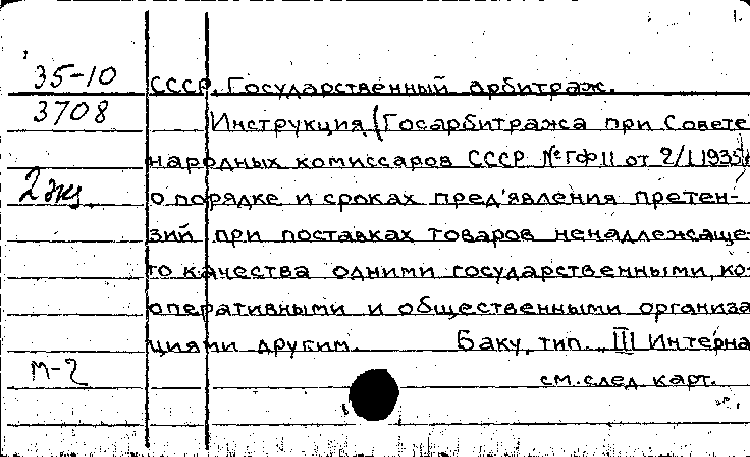 35-10
СССР. Государственный арбитраж.
3708
Инструкция (Госарбитража при Совете
народных комиссаров СССР №ГФ11 от 2/I 1935
2 экз.
о порядке и сроках пред'явления претен-
зий при поставках товаров ненадлежаще-
го качества одними государственными, ко-
оперативными и общественными организа
циями другим. Баку, тип. „III Интерна
М-2
см. след карт.